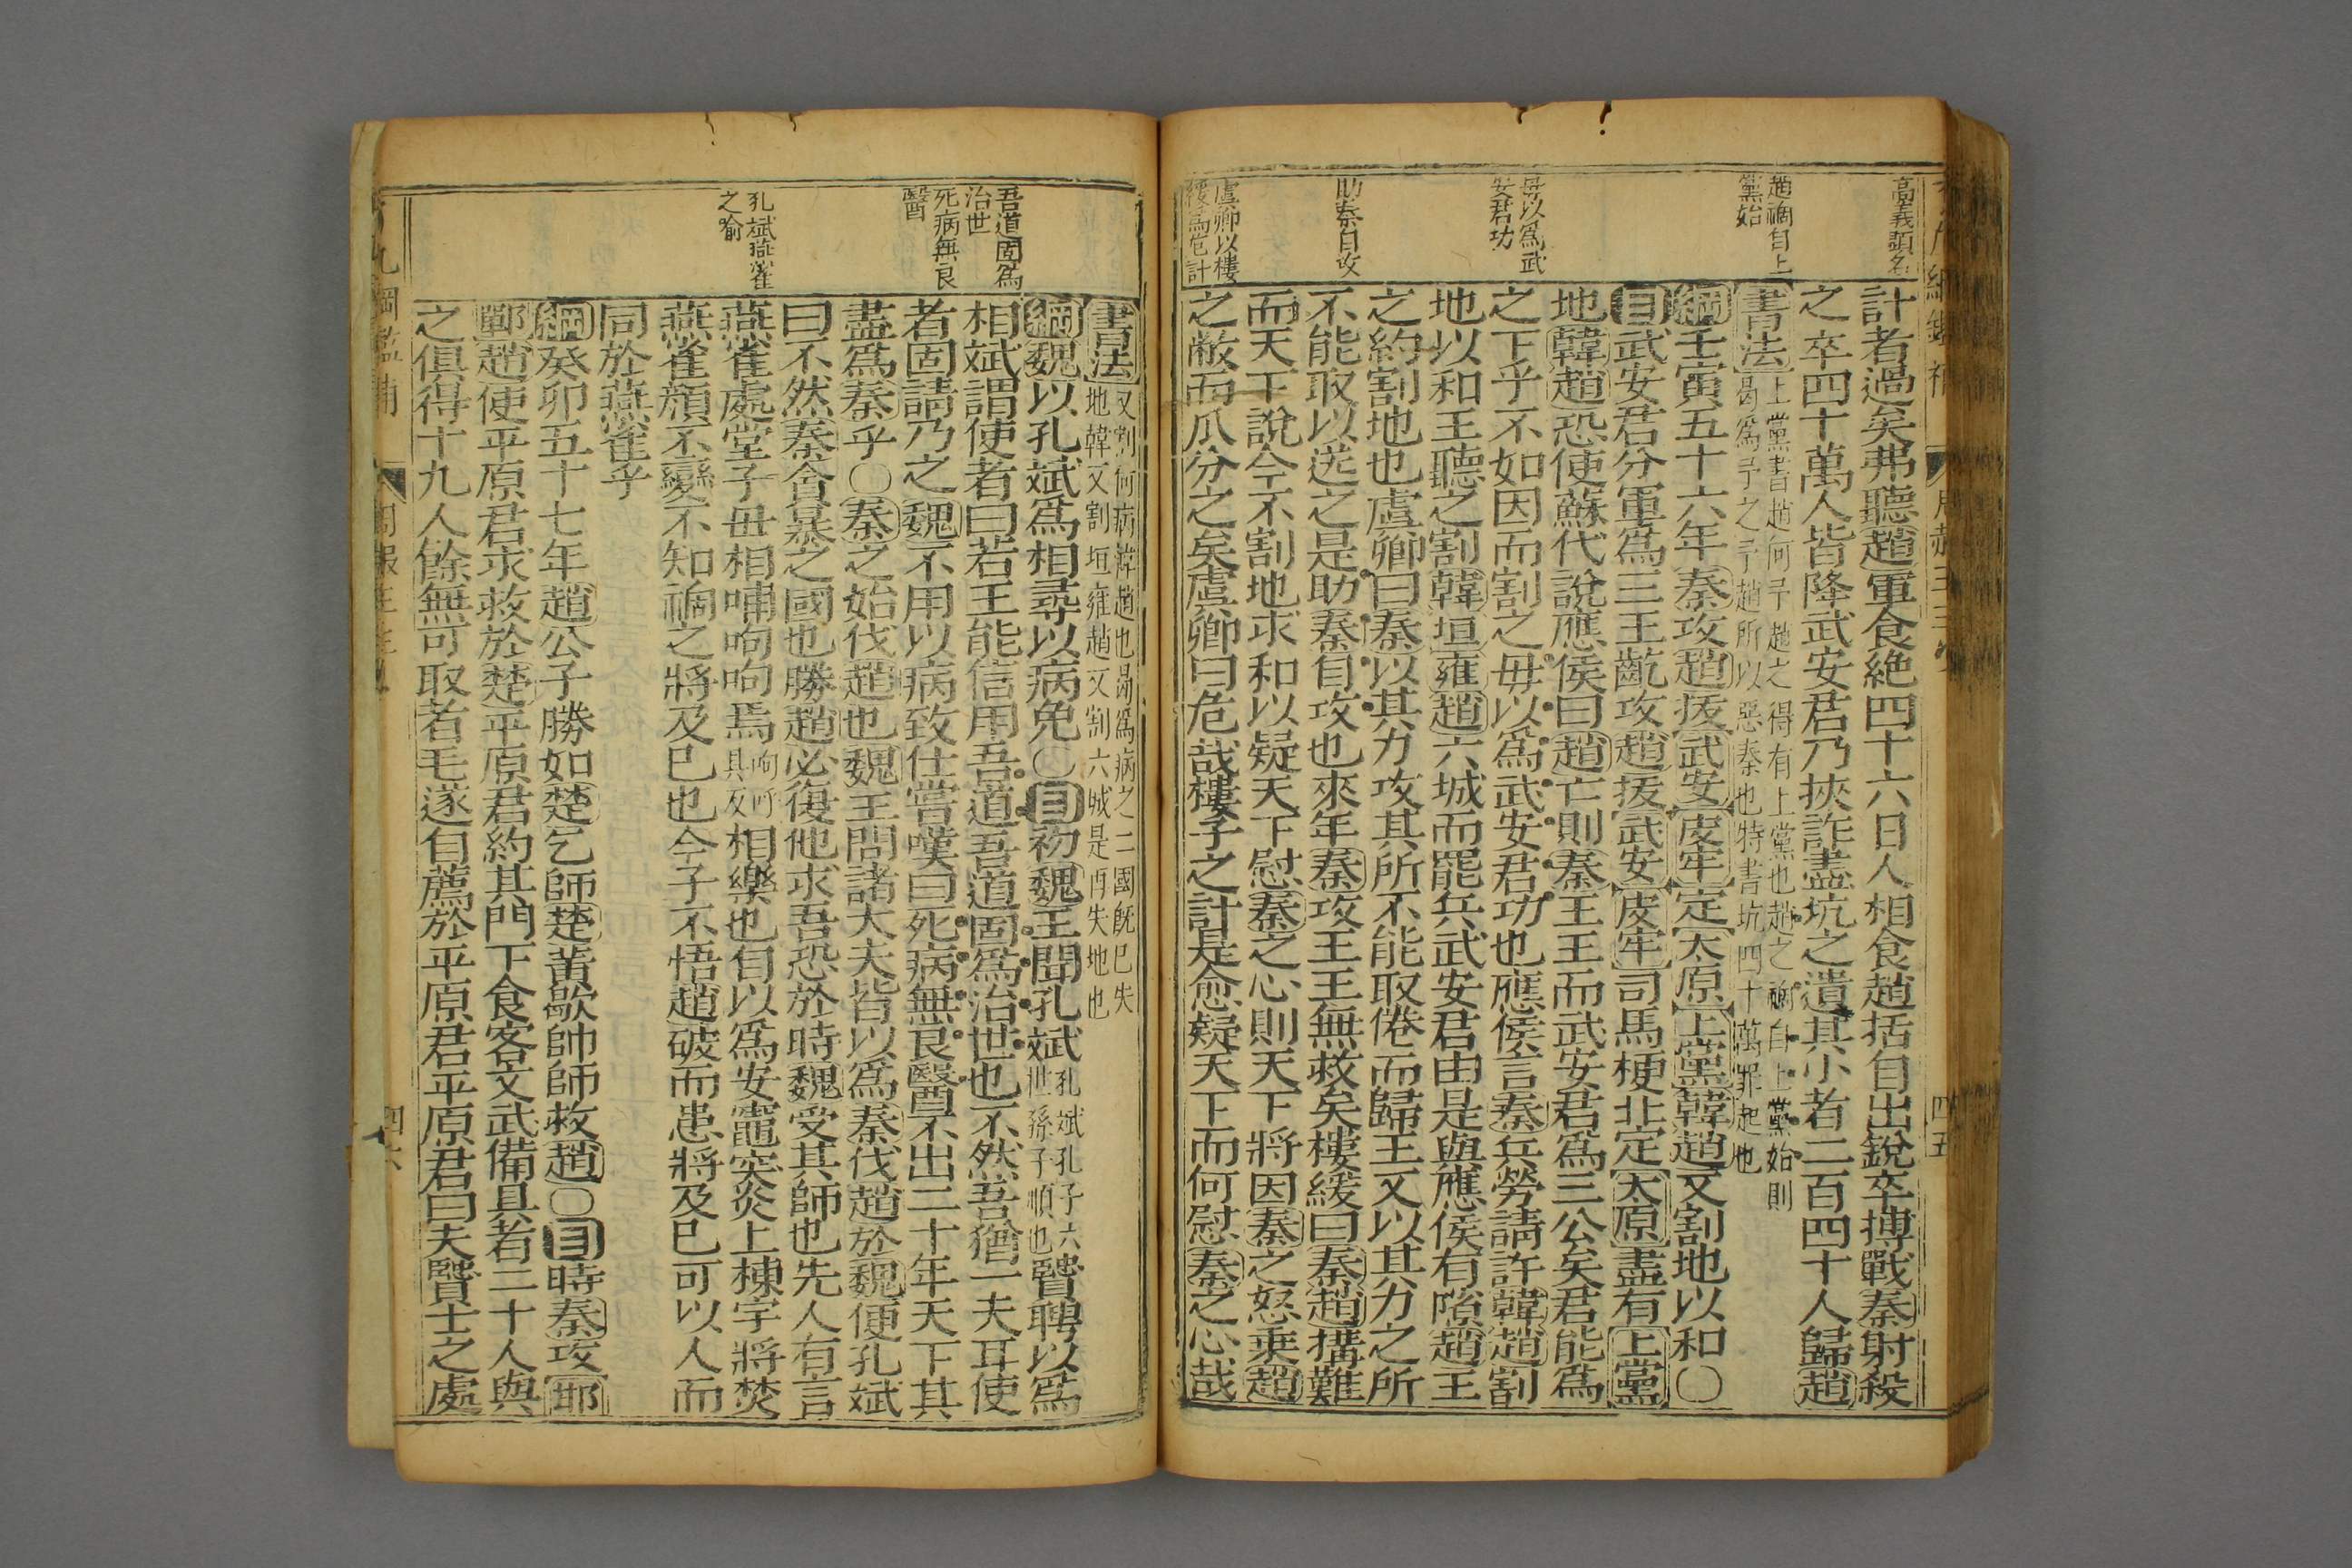 高義顯名
趙禍自上
黨始
毋以爲武
安君功
助秦自攻
虞卿以樓
緩爲危計
計者過矣弗聽趙軍食絶四十六日人相食趙括自出銳卒搏戰秦射殺
之卒四十萬人皆降武安君乃挾詐盡坑之遺其小者二百四十人歸趙
書法上黨書趙何予趙之得有上黨也趙之禍自上黨始則
曷爲予之予趙所以惡秦也特書坑四十萬罪起也
綱壬寅五十六年秦攻趙拔武安皮牢定太原上黨韓趙又割地以和〇
目武安君分軍爲三王齕攻趙拔武安皮牢司馬梗北定太原盡有上黨
地韓趙恐使蘇代說應侯曰趙亡則秦王王而武安君爲三公矣君能爲
之下乎不如因而割之毋以爲武安君功也應侯言秦兵勞請許韓趙割
地以和王聽之割韓垣雍趙六城而罷兵武安君由是與應侯有隙趙王
之約割地也虞卿曰秦以其力攻其所不能取倦而歸王又以其力之所
不能取以送之是助秦自攻也來年秦攻王王無救矣樓緩曰秦趙搆難
而天下說今不割地求和以疑天下慰秦之心則天下將因秦之怒乘趙
之敝而瓜分之矣虞卿曰危哉樓子之計是愈疑天下而何慰秦之心哉
四五
吾道固爲
治世
死病無良
醫
孔斌燕雀
之喻
書法又割何病韓趙也曷爲病之二國旣巳失
地韓又割垣雍趙又割六城是再失地也
綱魏以孔斌爲相尋以病免〇目初魏王聞孔斌孔斌孔子六世孫子順也賢聘以爲
相斌謂使者曰若王能信用吾道吾道固爲治世也不然吾猶一夫耳使
者固請乃之魏不用以病致仕嘗嘆曰死病無良醫不出二十年天下其
盡爲秦乎〇秦之始伐趙也魏王問諸大夫皆以爲秦伐趙於魏便孔斌
曰不然秦貪暴之國也勝趙必復他求吾恐於時魏受其師也先人有言
燕雀處堂子母相哺呴呴焉呴呼具反相樂也自以爲安竈突炎上棟宇將焚
燕雀顏不變不知禍之將及巳也今子不悟趙破而患將及巳可以人而
同於燕雀乎
綱癸卯五十七年趙公子勝如楚乞師楚黃歇帥師救趙〇目時秦攻邯
鄲趙使平原君求救於楚平原君約其門下食客文武備具者二十人與
之俱得十九人餘無可取者毛遂自薦於平原君平原君曰夫賢士之處
四六